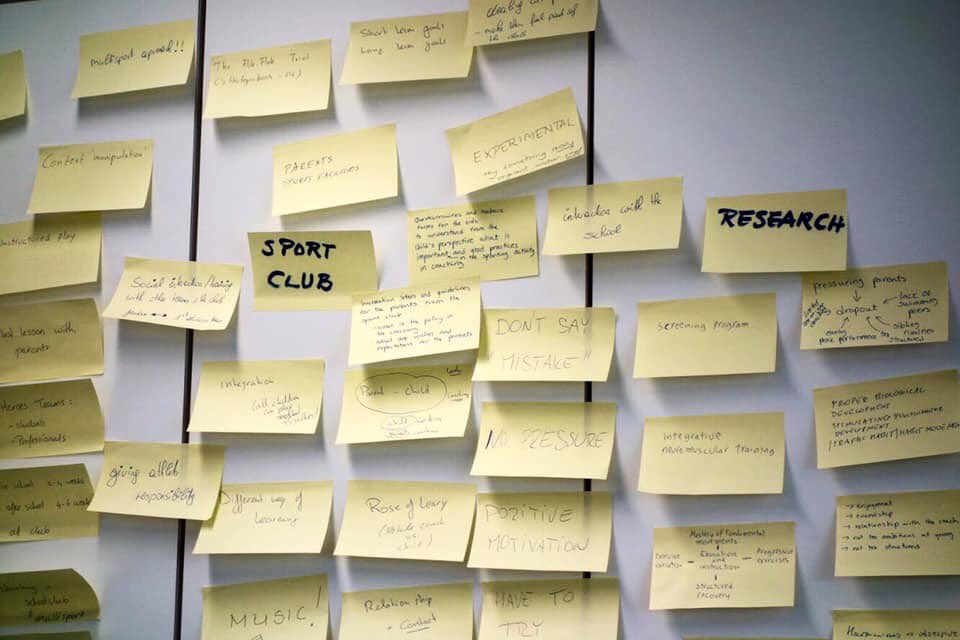 multisport aproach!!
The Flik-Flak Trial
Short term goals
Long term goals
- make them feel part of
the club
Context "manipulation"
PARENTS
SPORT FACILITIES
EXPERIMENTAL
Unstructured play
SPORT
CLUB
Questionnaires and feedback
forms for the kids
to understand from the
child's perspective what is
important and good practices
in coaching in the sporting activity
interaction with the
school
RESEARCH
Social interaction/training
with the team the club
lesson with
parents
for the parents from the
sport club
- what is the policy in
the coaching
- what are wishes and
expectations for the parents
DON'T SAY
"MISTAKE"
screening program
pressuring parents
dropout
lack of
swimming
peers
early
peak performance
sibling
rivalries
too
structured
Heroes Teams:
- students
- Professionals
Integration
(all children
can play
together)
Parent - child
NO PRESSURE
integrative
neuromuscular training
PROPER BIOLOGICAL
DEVELOPMENT
STIMULATING
DEVELOPMENT
giving athlete
responsibility
school
after school 4-6 weeks
at club
Different way of
Learning
Rose of Leary
(Attitude coach
vs.
child)
POZITIVE
MOTIVATION
Mastery of fundamental
movements
Exercise
variation
- Education
and
instruction
- Progressive
exercises
structured
recovery
→ enjoyment
→ friendship
→ relationship with the coach
→ not too ambitious at young
→ not too structures
school club
multisport
MUSIC!
Relationship
- Contact
HAVE TO
TRY